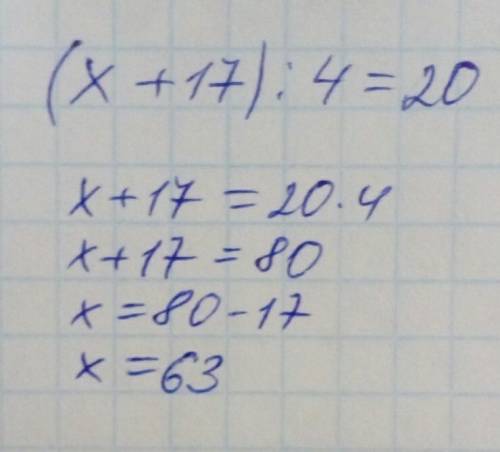 (x + 17) : 4 = 20
x + 17 = 20 · 4
x + 17 = 80
x = 80 - 17
x = 63